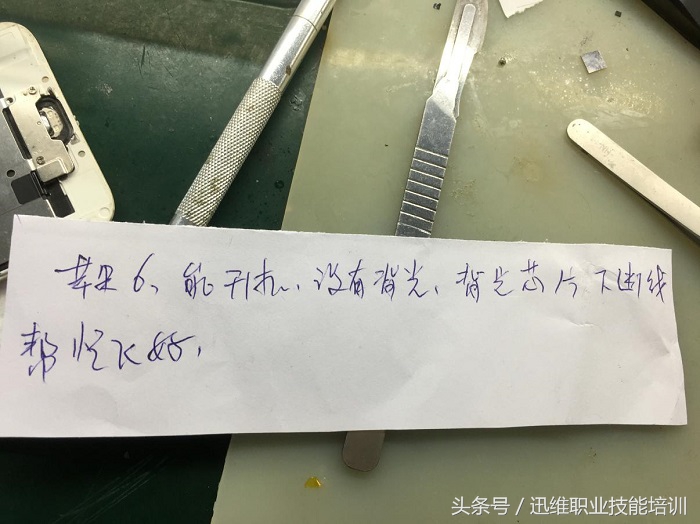 苹果6、能开机、没有背光、背光芯片下断线
帮忙飞好、
头条号／迅维职业技能培训